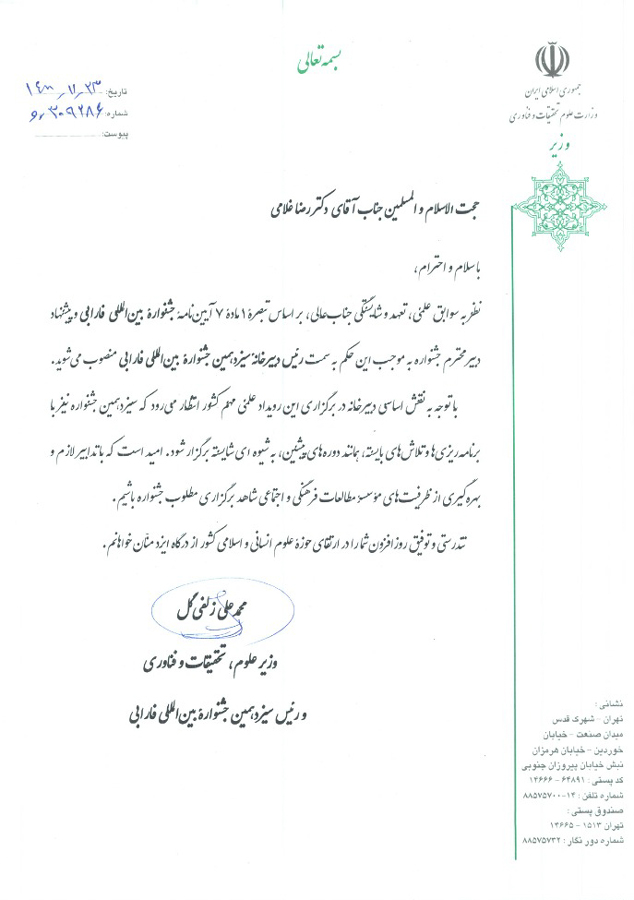 بسمه تعالی
جمهوری اسلامی ایران
وزارت علوم تحقیقات و فناوری
وزیر
تاریخ: ۱۴۰۰/۱۱/۲۳
شماره: ۳۰۹۲۸۶/و
پیوست:
حجت الاسلام و المسلمین جناب آقای دکتر رضا غلامی
با سلام و احترام،
نظر به سوابق علمی، تعهد و شایستگی جناب‌عالی، بر اساس تبصرهٔ ۱ مادهٔ ۷ آیین‌نامهٔ جشنوارهٔ بین‌المللی فارابی و پیشنهاد
دبیر محترم جشنواره به موجب این حکم به سمت رئیس دبیرخانه سیزدهمین جشنوارهٔ بین‌المللی فارابی منصوب می‌شوید.
با توجه به نقش اساسی دبیرخانه در برگزاری این رویداد علمی مهم کشور انتظار می‌رود که سیزدهمین جشنواره نیز با
برنامه‌ریزی‌ها و تلاش‌های بایسته، همانند دوره‌های پیشین، به شیوه ای شایسته برگزار شود. امید است که با تدابیر لازم و
بهره‌گیری از ظرفیت‌های مؤسسهٔ مطالعات فرهنگی و اجتماعی شاهد برگزاری مطلوب جشنواره باشیم.
تندرستی و توفیق روزافزون شما را در ارتقای حوزهٔ علوم انسانی و اسلامی کشور از درگاه ایزد منّان خواهانم.
محمدعلی زلفی گل
وزیر علوم، تحقیقات و فناوری
و رئیس سیزدهمین جشنوارهٔ بین‌المللی فارابی
نشانی:
تهران - شهرک قدس
میدان صنعت - خیابان
خوردین - خیابان هرمزان
نبش خیابان پیروزان جنوبی
کد پستی: ۶۴۸۹۱ - ۱۴۶۶۶
شماره تلفن: ۱۴-۸۸۵۷۵۷۰۰
صندوق پستی:
تهران ۱۵۱۳ - ۱۴۶۶۵
شماره دور نگار: ۸۸۵۷۵۷۳۲